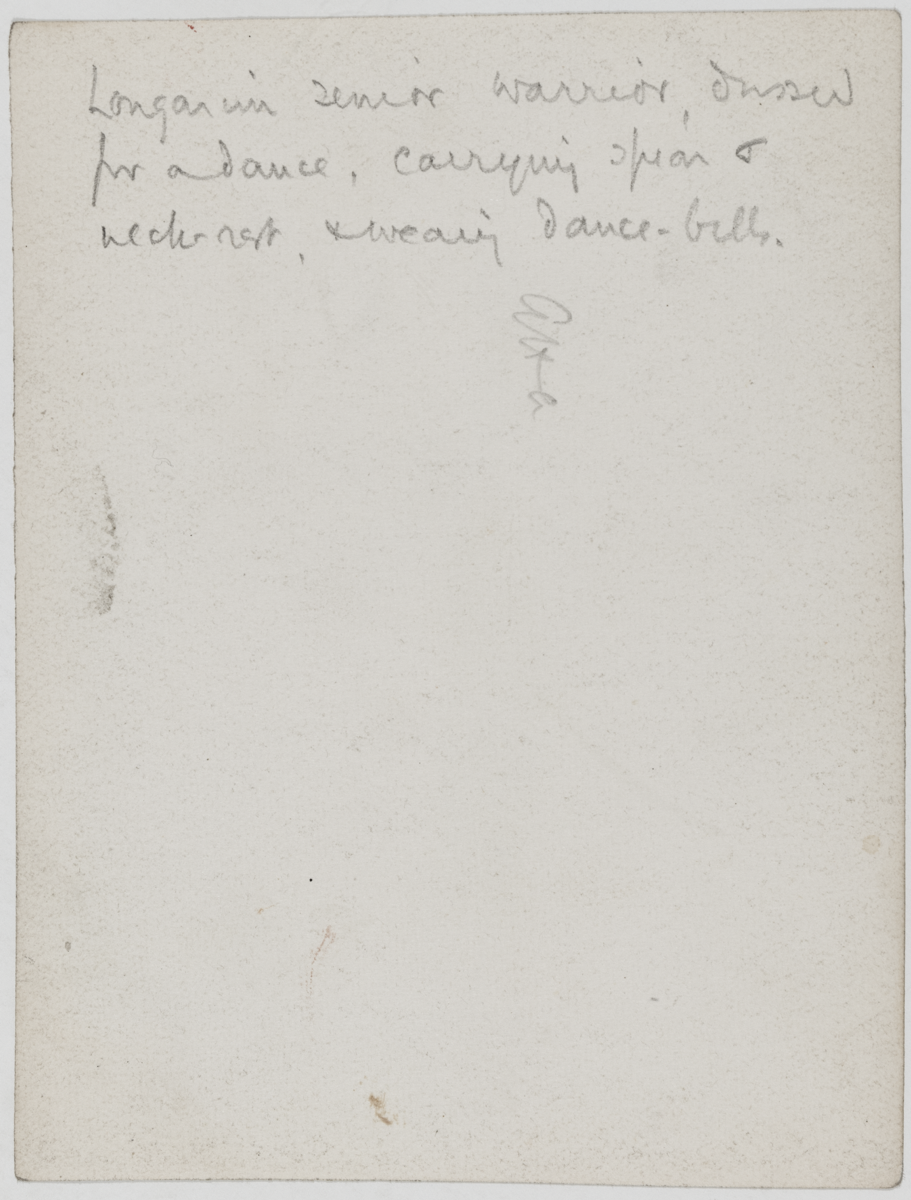 Longarim senior warrior, dressed
for a dance, carrying spear &
neck-rest, & wearing dance-bells.